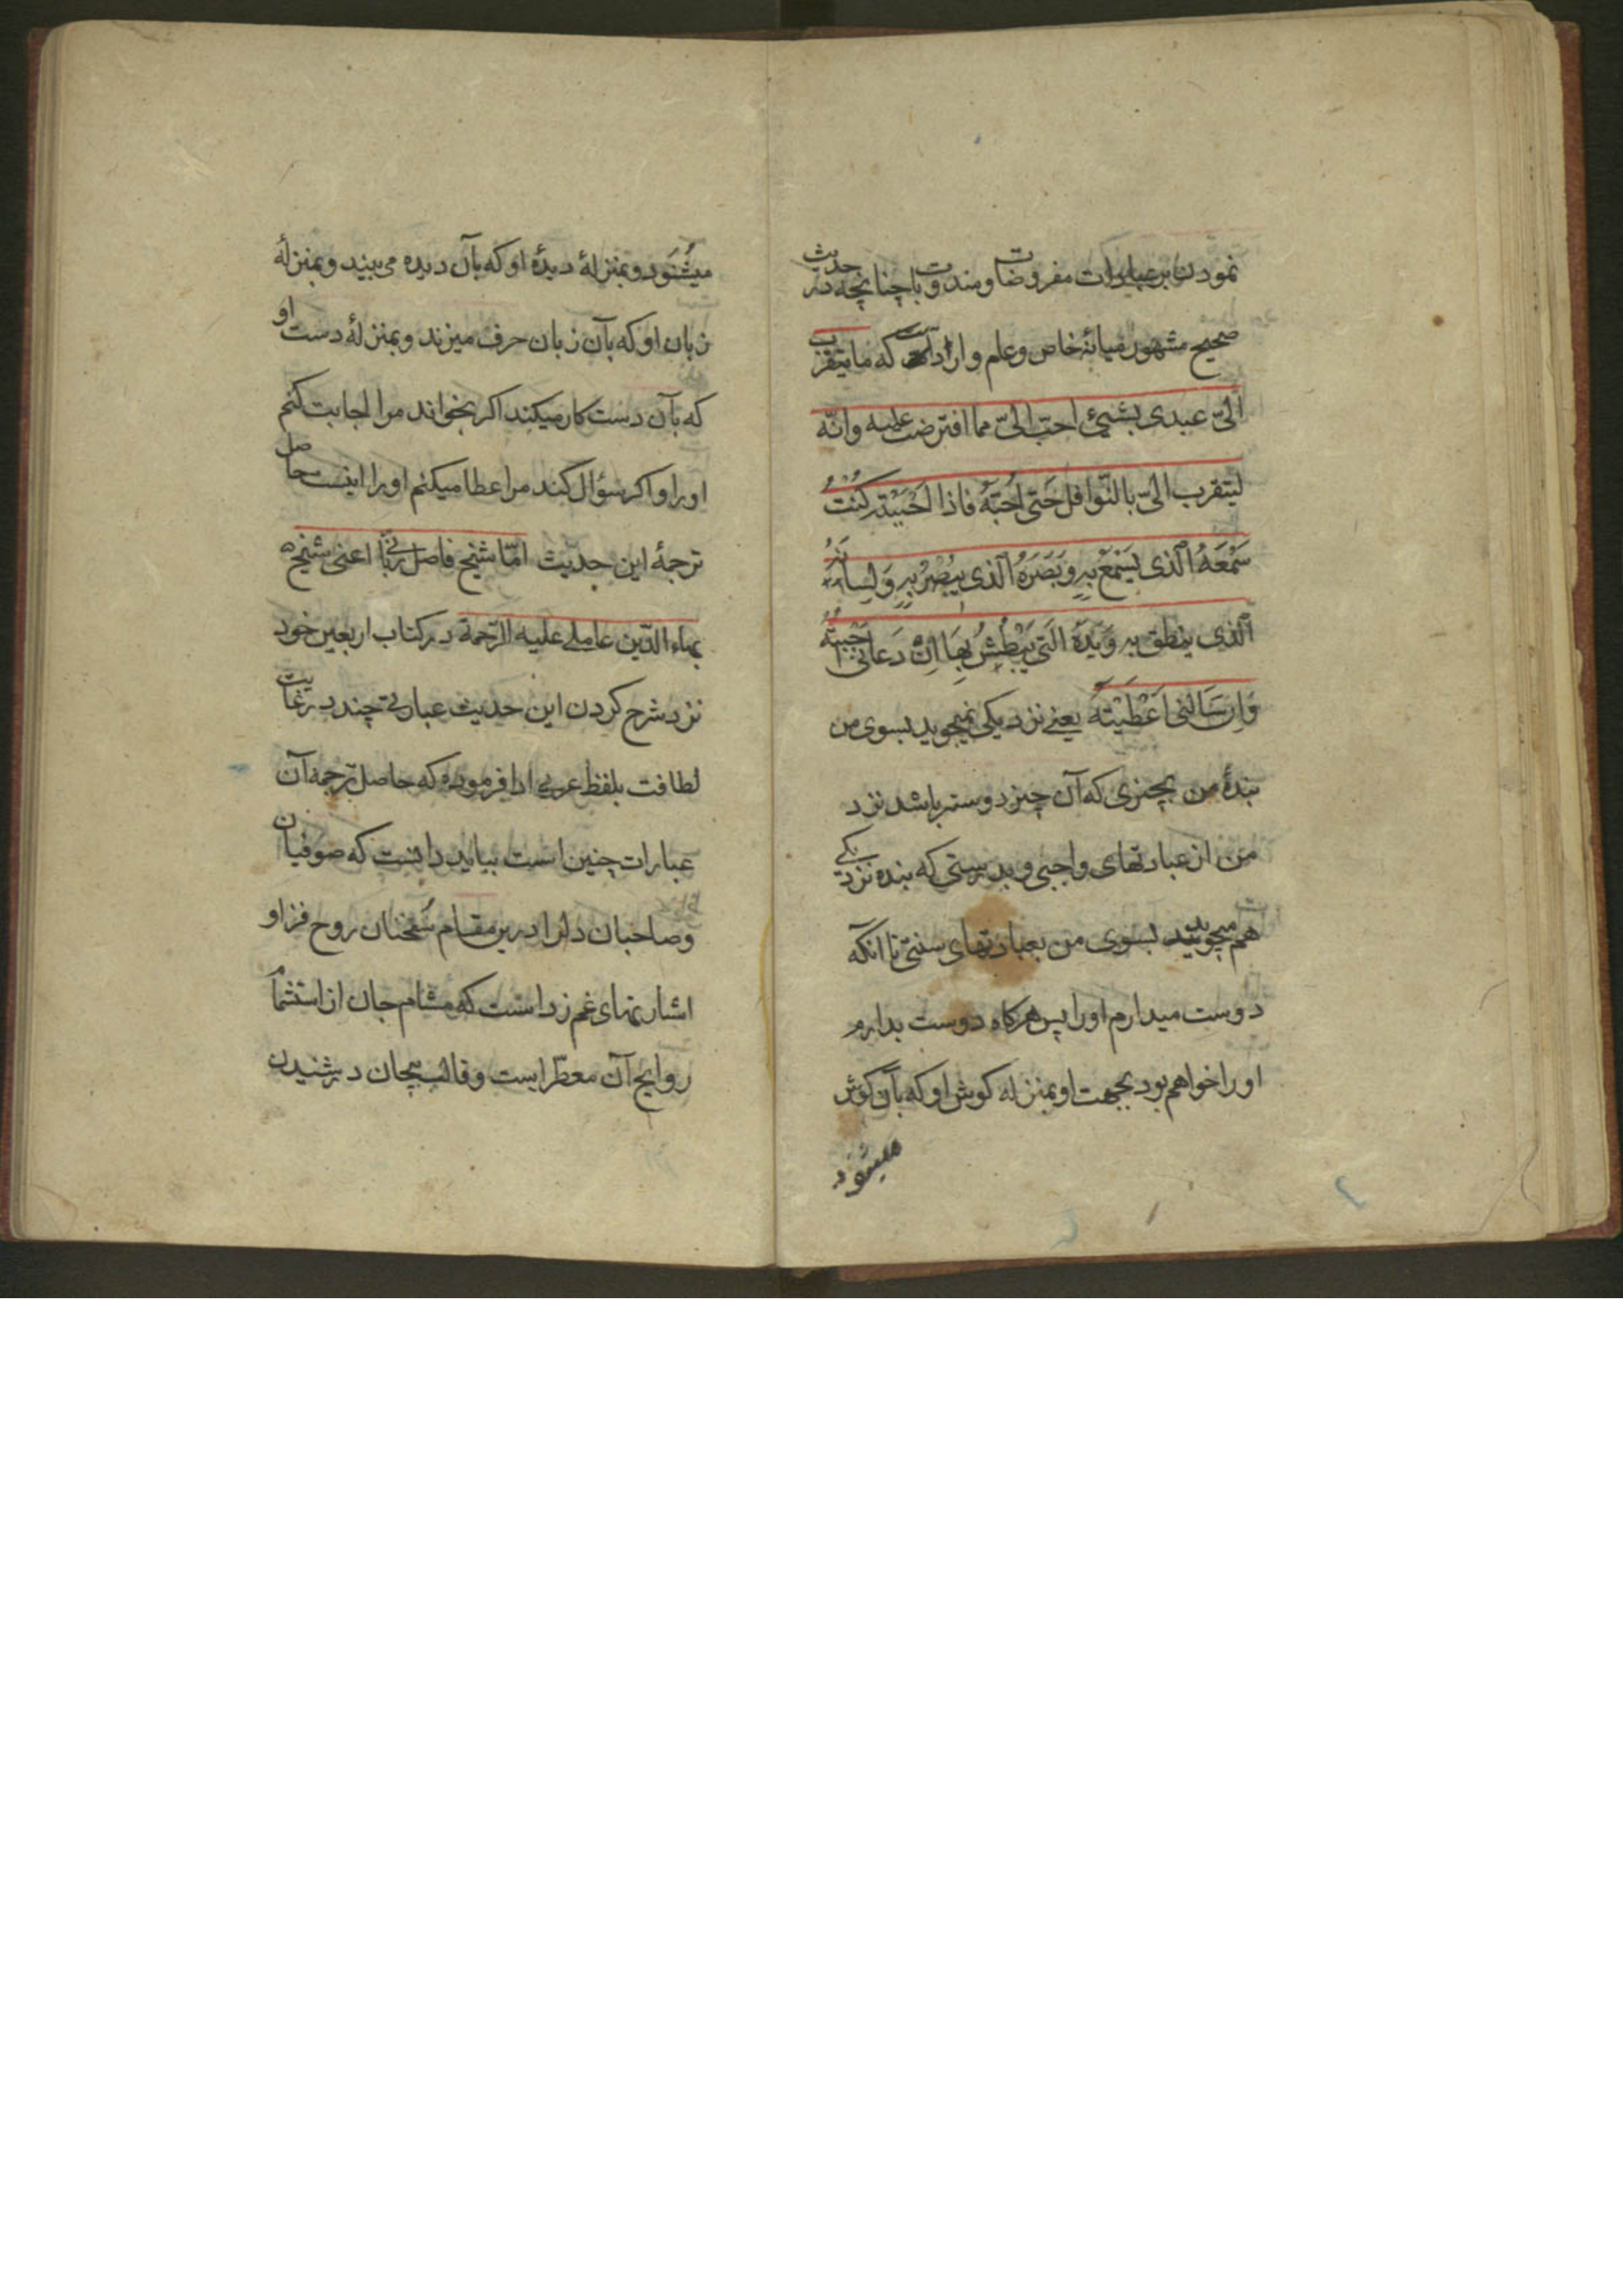 نمودن بر عبادات مفروضات و مندوبات چنانچه در حدیث
صحیح مشهور میانهٔ خاص و عام وارد است که ما یتقرب
الیّ عبدی بشیئ احبّ الیّ مما افترضت علیه وانّه
لیتقرب الیّ بالنّوافل حَتی اُحبّهُ فاذا اَحْبَبْتُه کُنْتُ
سَمْعَهُ الّذی یَسْمَعُ بِهِ وَبَصَرَهُ الّذی یُبْصِرُ بِهِ وَلِسانَهُ
الّذی ینطق به وَیَدَهُ الّتی یَبْطِشُ بِهَا اِنْ دَعَانی اَجَبْتُهُ
وَاِن سَالَنی اَعْطَیْتُهُ یعنی نزدیکی نمیجوید بسوی من
بندهٔ من بچیزی که آن چیز دوستر باشد نزد
من از عبادتهای واجبی و بدرستی که بنده نزدیکی
هم میجوید بسوی من بعبادتهای سنتی تا آنکه
دوست میدارم او را پس هرکاه دوست بدارم
او را خواهم بود بجهت او بمنزله کوش او که بآن کوش
میشنود
میشنود و بمنزلهٔ دیدهٔ او که بآن دیده می بیند و بمنزلهٔ
زبان او که بآن زبان حرف میزند و بمنزلهٔ دست او
که بآن دست کار میکند اکر بخواند مرا اجابت کنم
او را و اکر سؤال کند مرا عطا میکنم او را اینست حاصل
ترجمهٔ این حدیث امّا شیخ فاضل ربّانی اعنی شیخ
بهاء الدّین عاملی علیه الرّحمة در کتاب اربعین خود
نزد شرح کردن این حدیث عبارتی چند در غایت
لطافت بلفظ عربی ادا فرموده که حاصل ترجمه آن
عبارات چنین است بباید دانست که صوفیان
و صاحبان دل را درین مقام سخنان روح فزا و
اشارتهای غم زداست که مشام جان از استشمام
روایح آن معطّر است و قالب بیجان در شنیدن